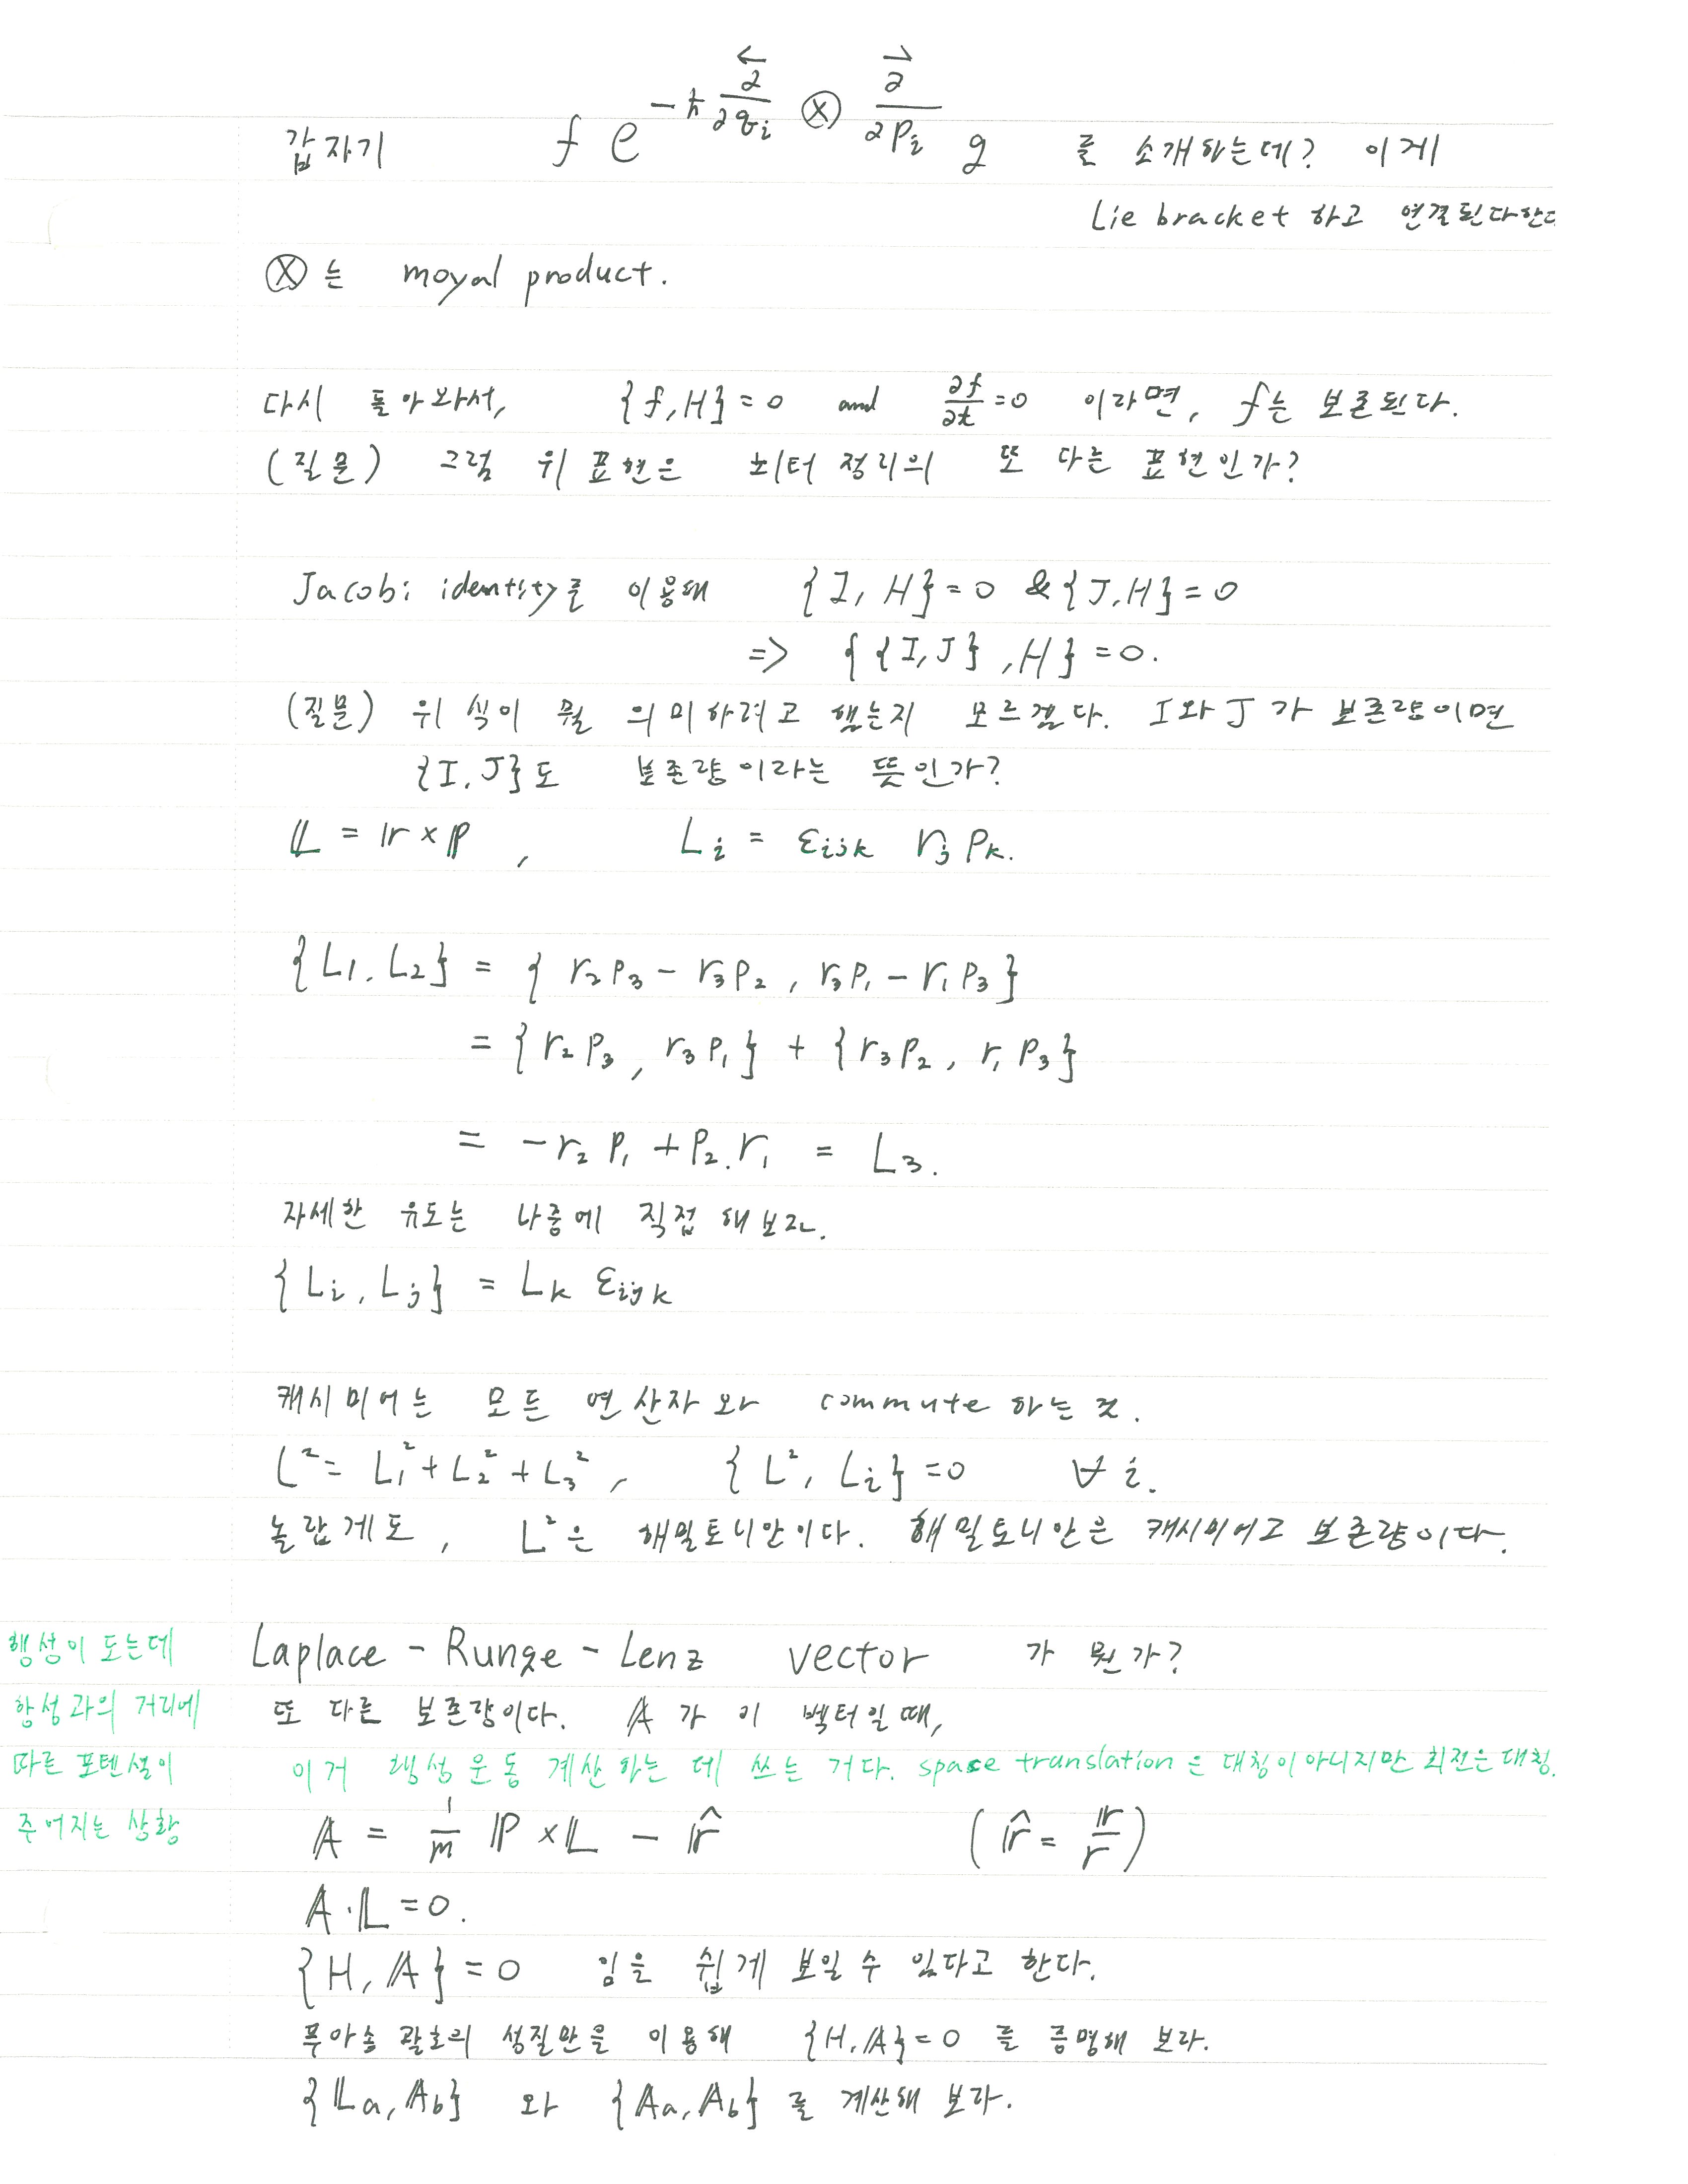 갑자기 f e^{-ħ \frac{\overleftarrow{∂}}{∂q_i} ⊗ \frac{\overrightarrow{∂}}{∂p_i}} g 를 소개하는데? 이게
Lie bracket 하고 연결된다한다
⊗는 moyal product.
다시 돌아와서, {f, H} = 0 and ∂f/∂t = 0 이라면, f는 보존된다.
(질문) 그럼 위 표현은 뇌터 정리의 또 다른 표현인가?
Jacobi identity를 이용해 {I, H} = 0 & {J, H} = 0
=> {{I, J}, H} = 0.
(질문) 위 식이 뭘 의미하려고 했는지 모르겠다. I와 J가 보존량이면
{I, J}도 보존량이라는 뜻인가?
𝕃 = 𝕣 × ℙ, L_i = ε_{ijk} r_j p_k.
{L_1, L_2} = { r_2 p_3 - r_3 p_2, r_3 p_1 - r_1 p_3 }
= { r_2 p_3, r_3 p_1 } + { r_3 p_2, r_1 p_3 }
= -r_2 p_1 + p_2 r_1 = L_3.
자세한 유도는 나중에 직접 해보라.
{L_i, L_j} = L_k ε_{ijk}
캐시미어는 모든 연산자와 commute 하는 것.
L² = L_1² + L_2² + L_3², {L², L_i} = 0 ∀ i.
놀랍게도, L²은 해밀토니안이다. 해밀토니안은 캐시미어고 보존량이다.
행성이 도는데
항성과의 거리에
따른 포텐셜이
주어지는 상황
Laplace - Runge - Lenz vector 가 뭔가?
또 다른 보존량이다. 𝔸가 이 벡터일 때,
이거 행성 운동 계산하는 데 쓰는 거다. space translation은 대칭이 아니지만 회전은 대칭.
𝔸 = \frac{1}{m} ℙ × 𝕃 - \hat{𝕣} ( \hat{𝕣} = \frac{𝕣}{r} )
𝔸 · 𝕃 = 0.
{H, 𝔸} = 0 임을 쉽게 보일 수 있다고 한다.
푸아송 괄호의 성질만을 이용해 {H, 𝔸} = 0 를 증명해 보라.
{𝕃_a, 𝔸_b} 와 {𝔸_a, 𝔸_b} 를 계산해 보라.